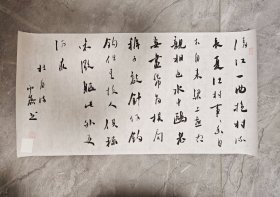 清江一曲抱村流
長夏江村事事幽自
去自来梁上燕相
親相近水中鷗老
妻畫纸為棋局
稚子敲針作釣
鈎但有故人供禄
米微軀此外更
何求
杜甫诗
书